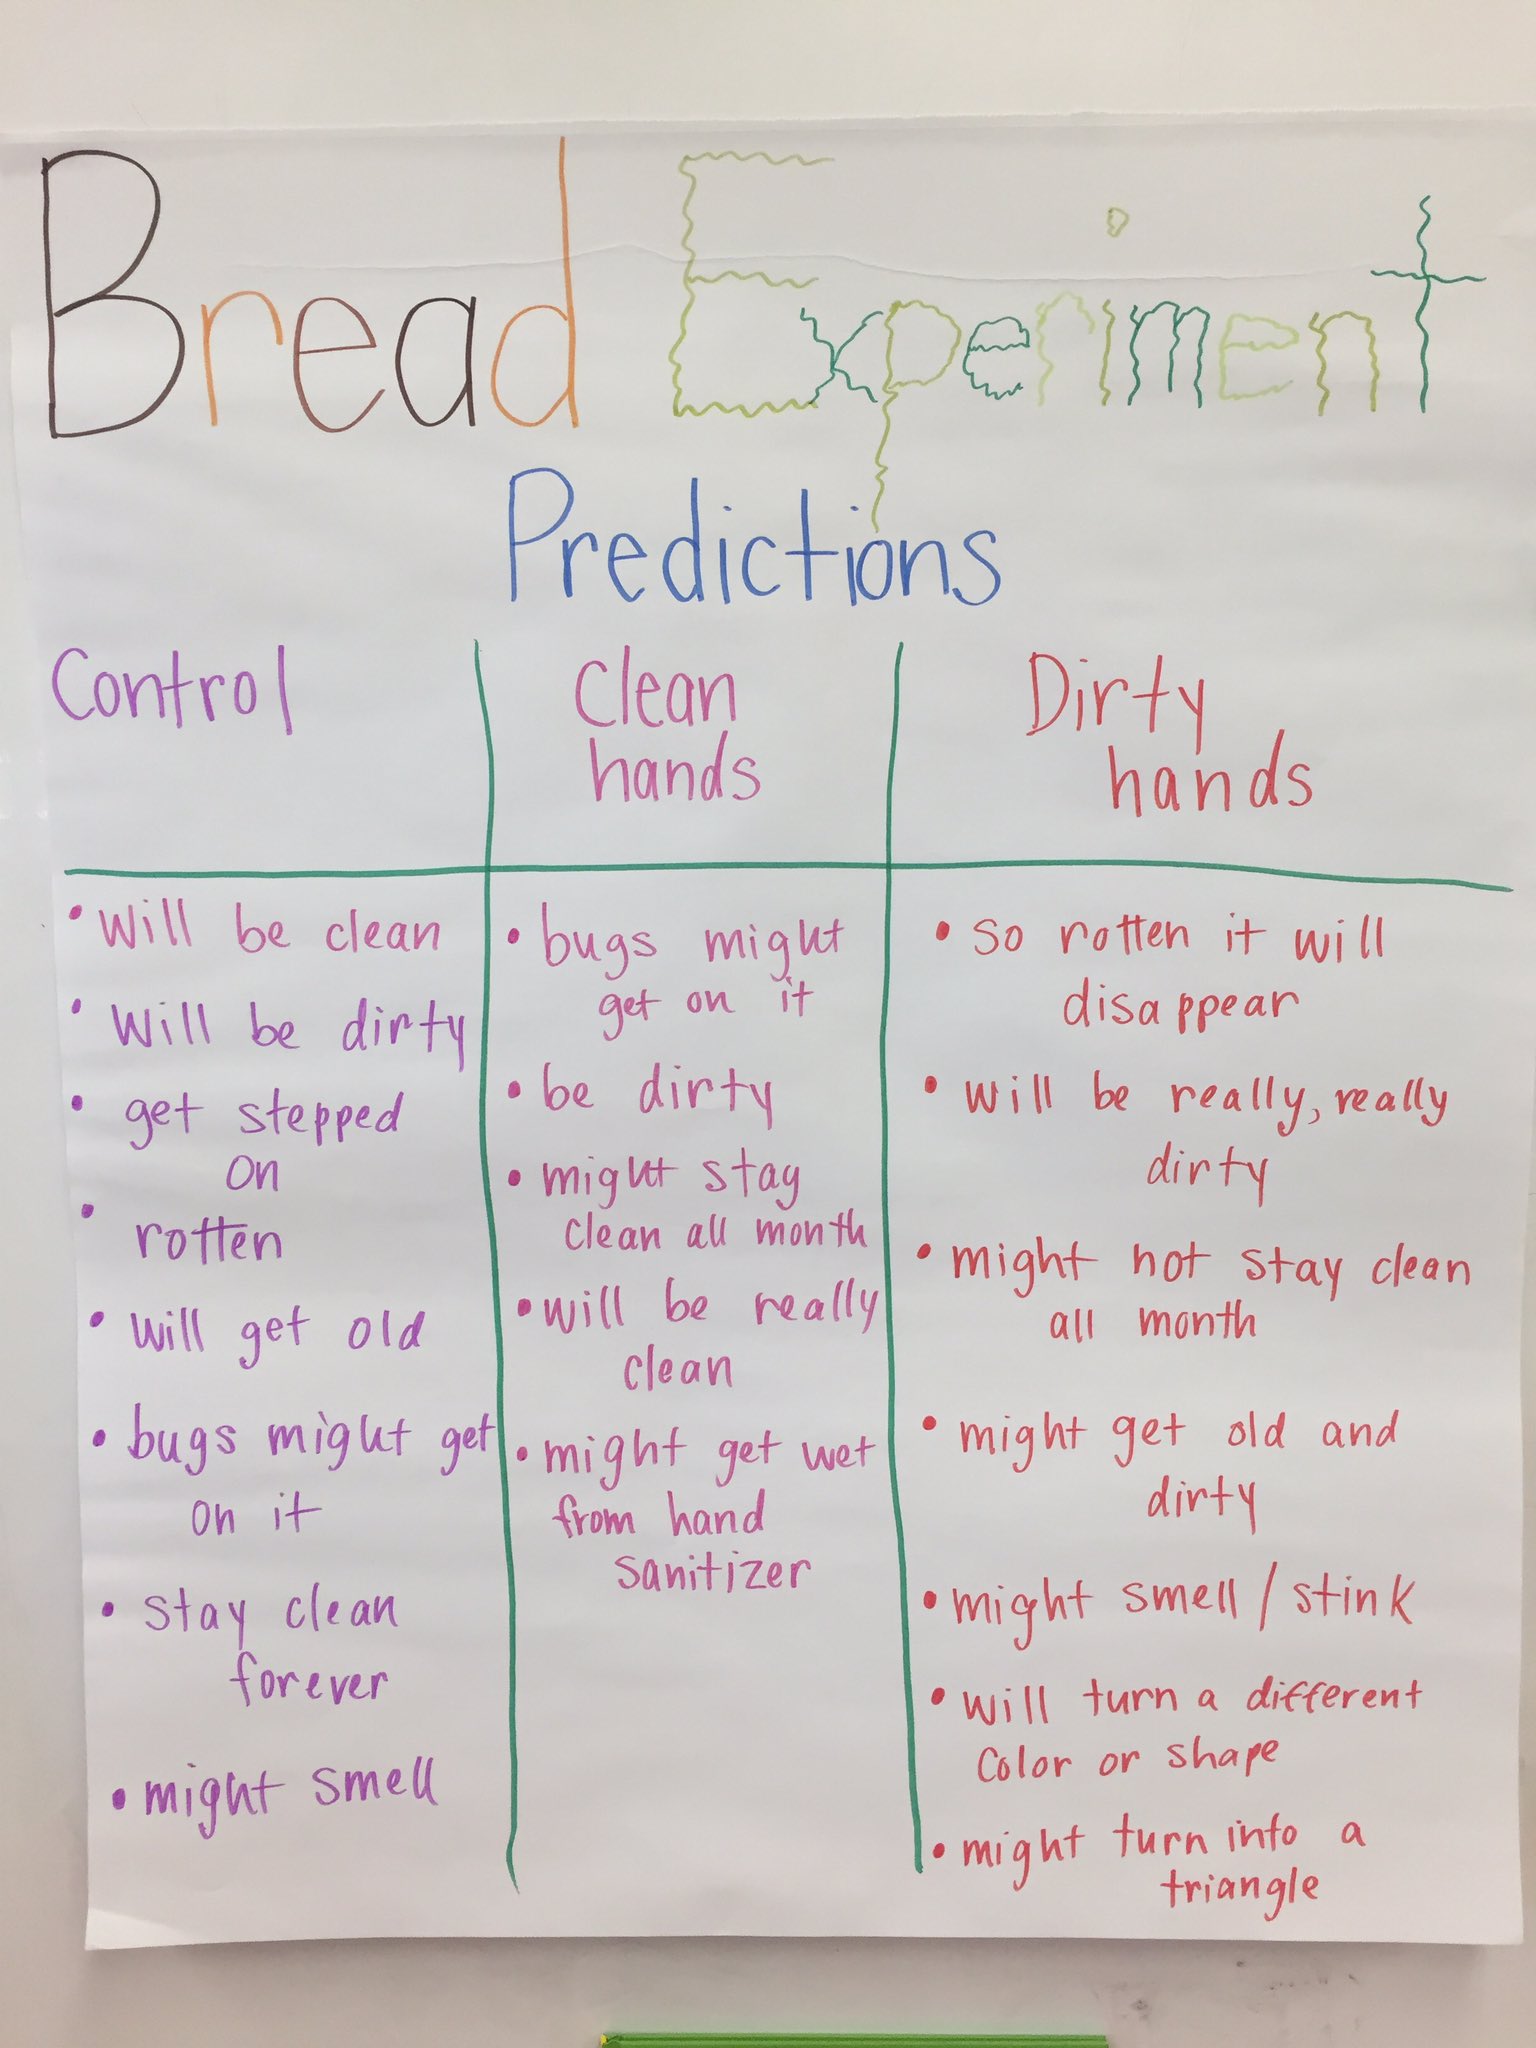 Bread Experiment
Predictions
Control
Clean
hands
Dirty
hands
• will be clean
• Will be dirty
• get stepped
on
• rotten
• will get old
• bugs might get
on it
• stay clean
forever
• might smell
• bugs might
get on it
• be dirty
• might stay
clean all month
• will be really
clean
• might get wet
from hand
sanitizer
• so rotten it will
disappear
• will be really, really
dirty
• might not stay clean
all month
• might get old and
dirty
• might smell / stink
• will turn a different
color or shape
• might turn into a
triangle